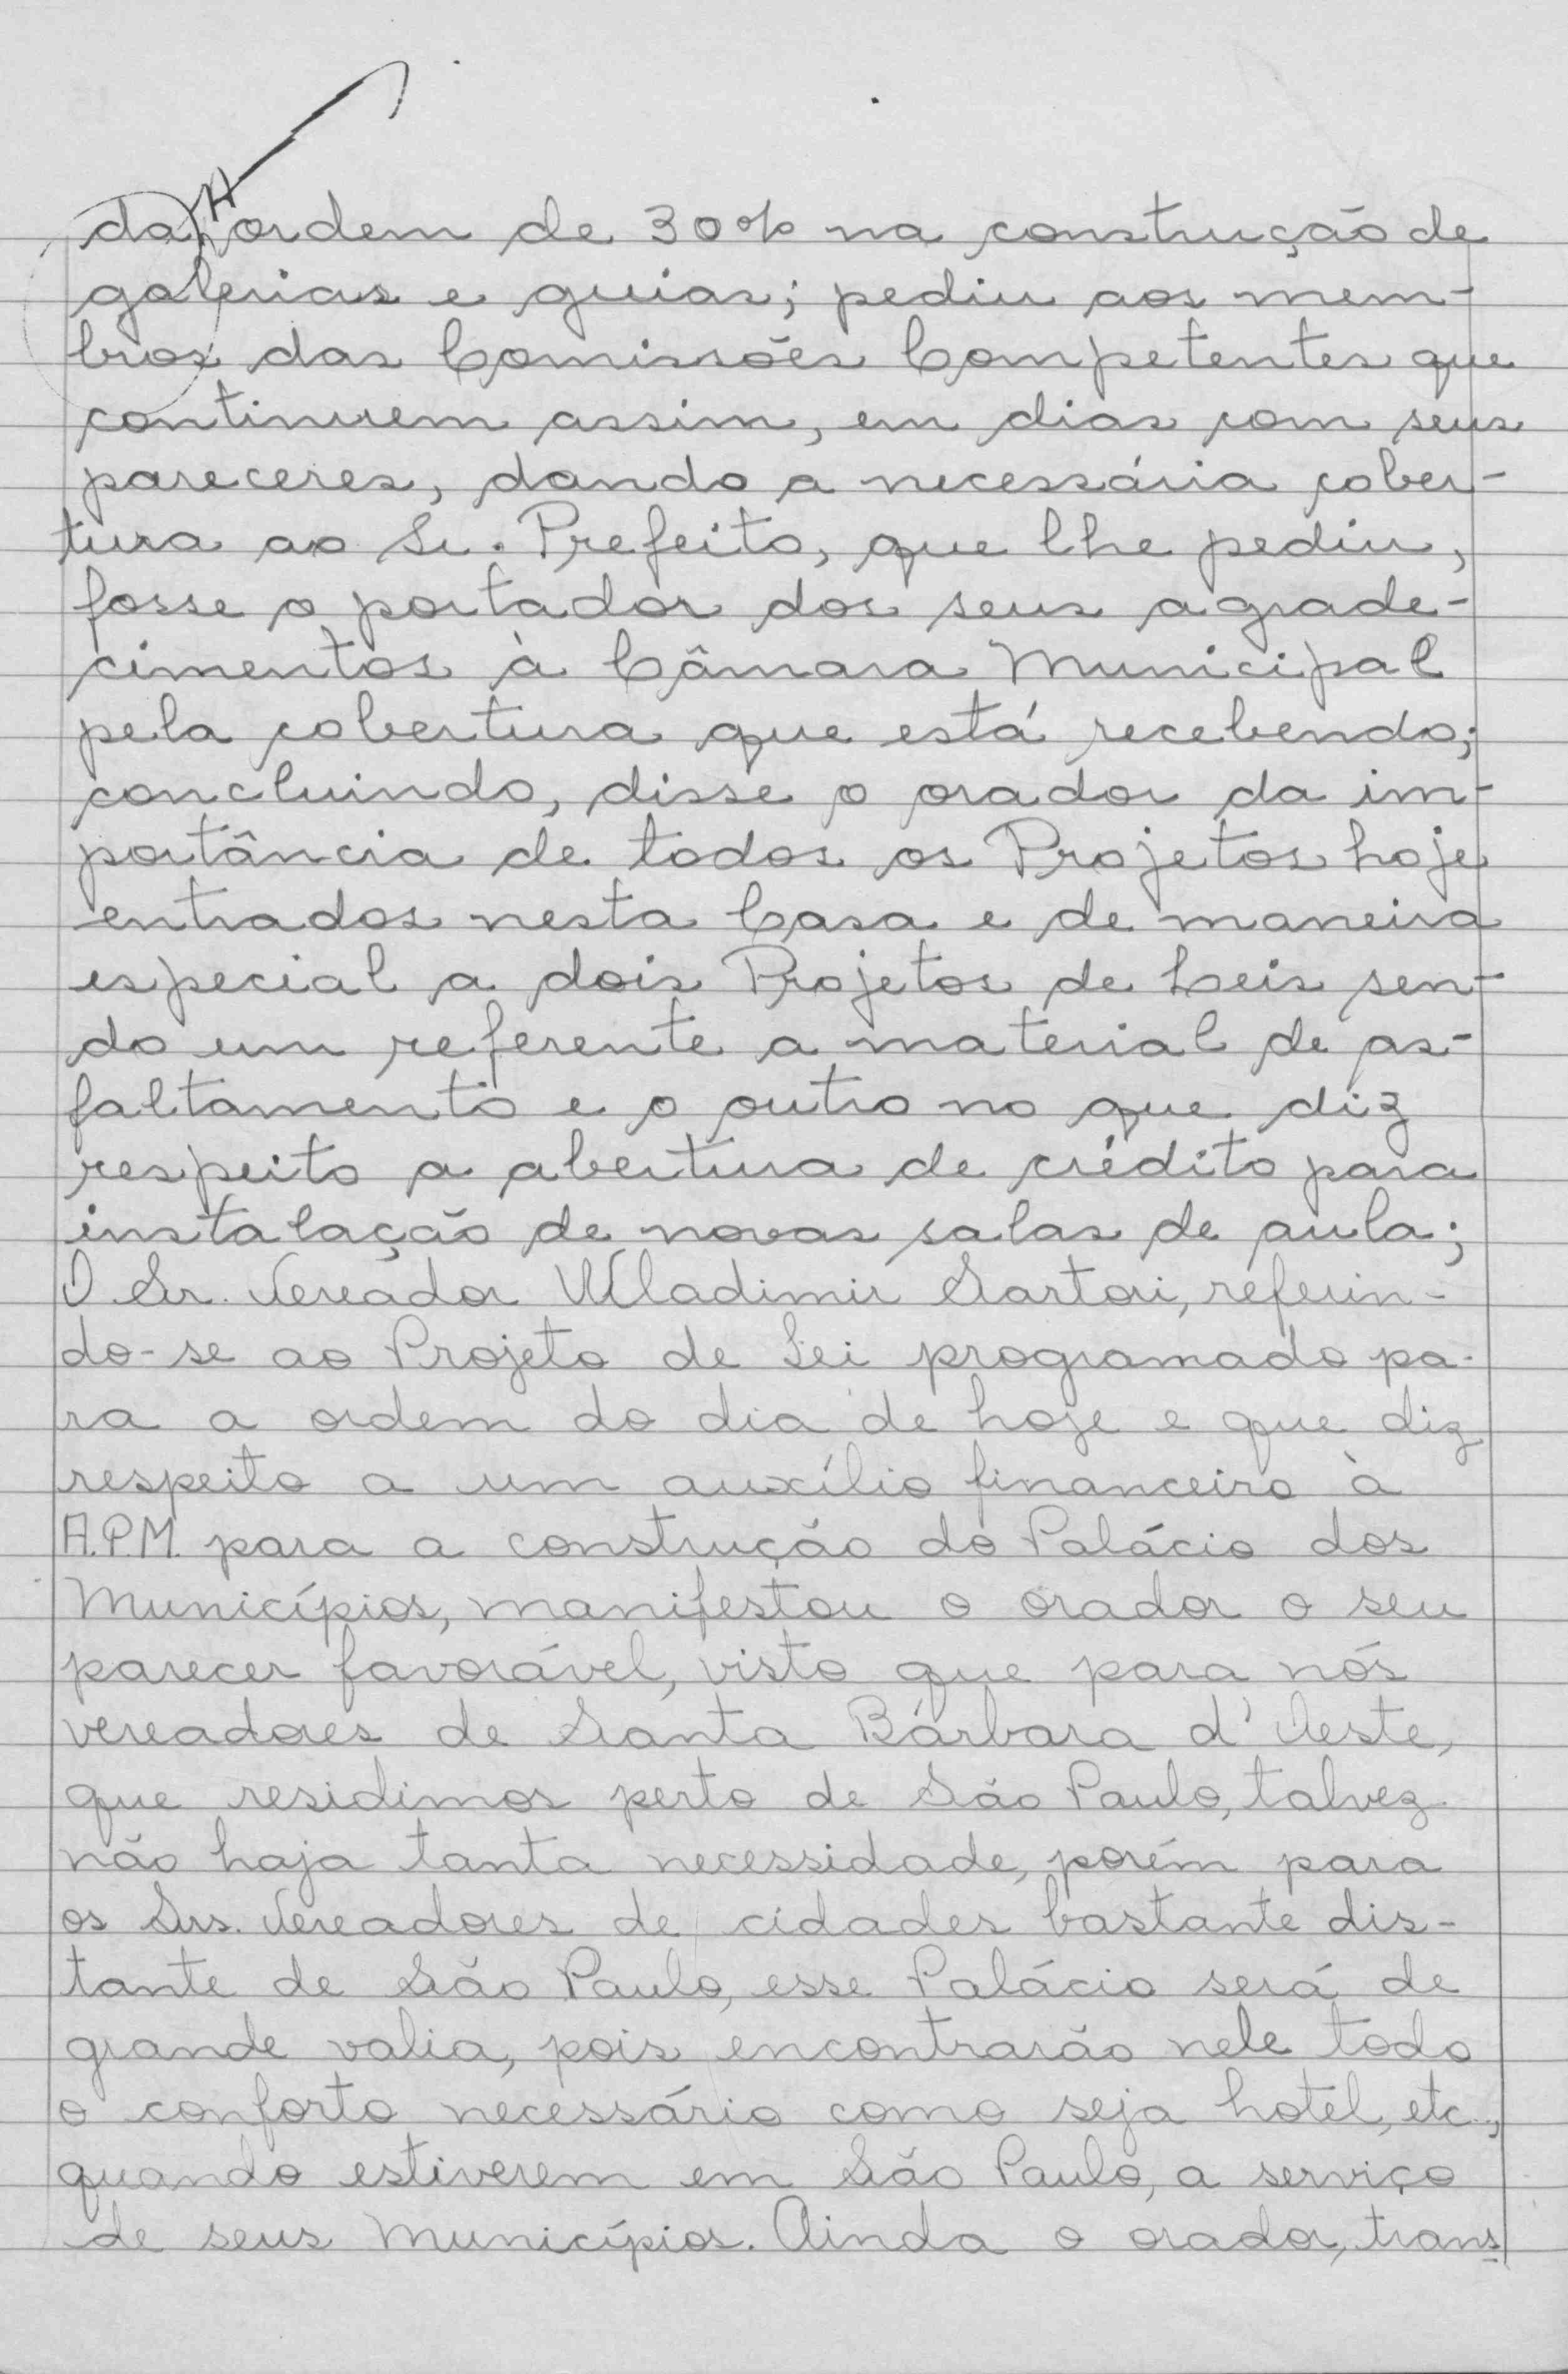 da ordem de 30% na construção de
galerias e guias; pediu aos mem-
bros das Comissões Competentes que
continuem assim, em dias com seus
pareceres, dando a necessária cober-
tura ao Sr. Prefeito, que lhe pediu,
fosse o portador dos seus agrade-
cimentos à Câmara Municipal
pela cobertura que está recebendo;
concluindo, disse o orador da im-
portância de todos os Projetos hoje
entrados nesta Casa e de maneira
especial a dois Projetos de Leis sen-
do um referente a material de as-
faltamento e o outro no que diz
respeito a abertura de crédito para
instalação de novas salas de aula;
O Sr. Vereador Wladimir Sartori, referin-
do-se ao Projeto de Lei programado pa-
ra a ordem do dia de hoje e que diz
respeito a um auxílio financeiro à
A.P.M. para a construção do Palácio dos
Municípios, manifestou o orador o seu
parecer favorável, visto que para nós
vereadores de Santa Bárbara d'Oeste,
que residimos perto de São Paulo, talvez
não haja tanta necessidade, porém para
os Srs. Vereadores de cidades bastante dis-
tante de São Paulo, esse Palácio será de
grande valia, pois encontrarão nele todo
o conforto necessário como seja hotel, etc.,
quando estiverem em São Paulo, a serviço
de seus Municípios. Ainda o orador, trans-